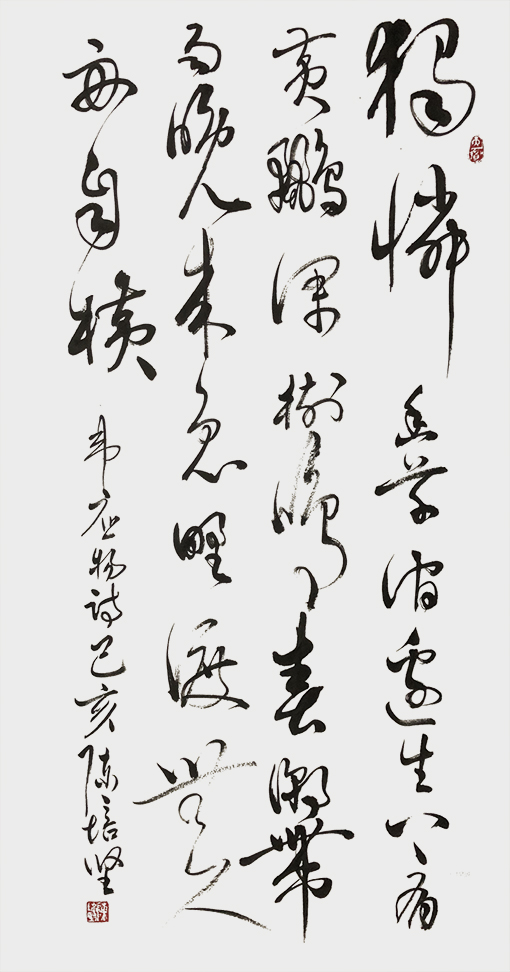 獨憐幽草澗邊生上有
黃鸝深樹鳴春潮帶
雨晚來急野渡無人
舟自橫
韋應物詩己亥陳培堅